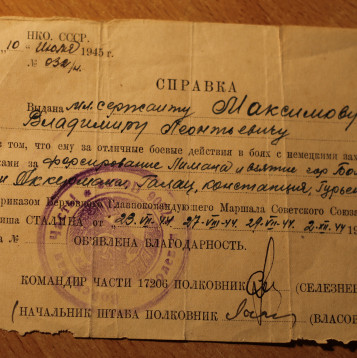 НКО. СССР.
„10 - июля 1945 г.
№ 032/н.
СПРАВКА
Выдана мл. сержанту Максимову
Владимиру Леонтьевичу
в том, что ему за отличные боевые действия в боях с немецкими зах
ками за форсирование Лимана и взятие гор
и Аккерман, Галац, Констанция,
риказом Верховного Главнокомандующего Маршала Советского Союз
иша СТАЛИНА от 23.VIII-44. 27-VIII-44. 29.VIII-44. 19
а № ОБ'ЯВЛЕНА БЛАГОДАРНОСТЬ.
КОМАНДИР ЧАСТИ 17206 ПОЛКОВНИК (СЕЛЕЗНЕ
(НАЧАЛЬНИК ШТАБА ПОЛКОВНИК (ВЛАСОВ